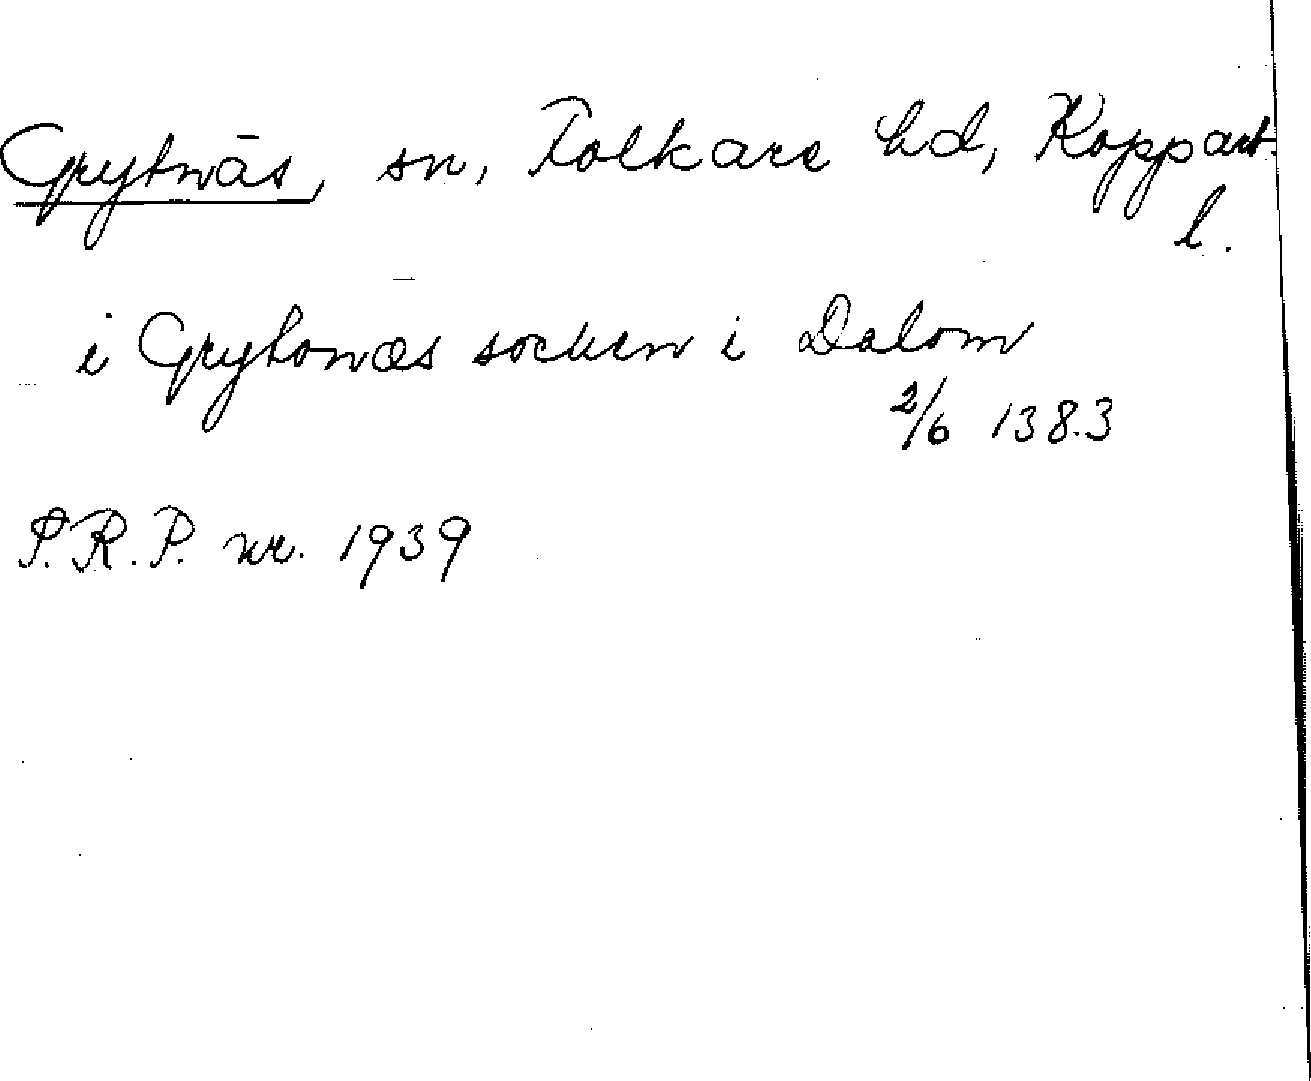 Grytnäs, sn, Folkare hd, Koppart.
l.
i Grytonæs socken i Dalom
2/6 1383
S.R.P. nr. 1939